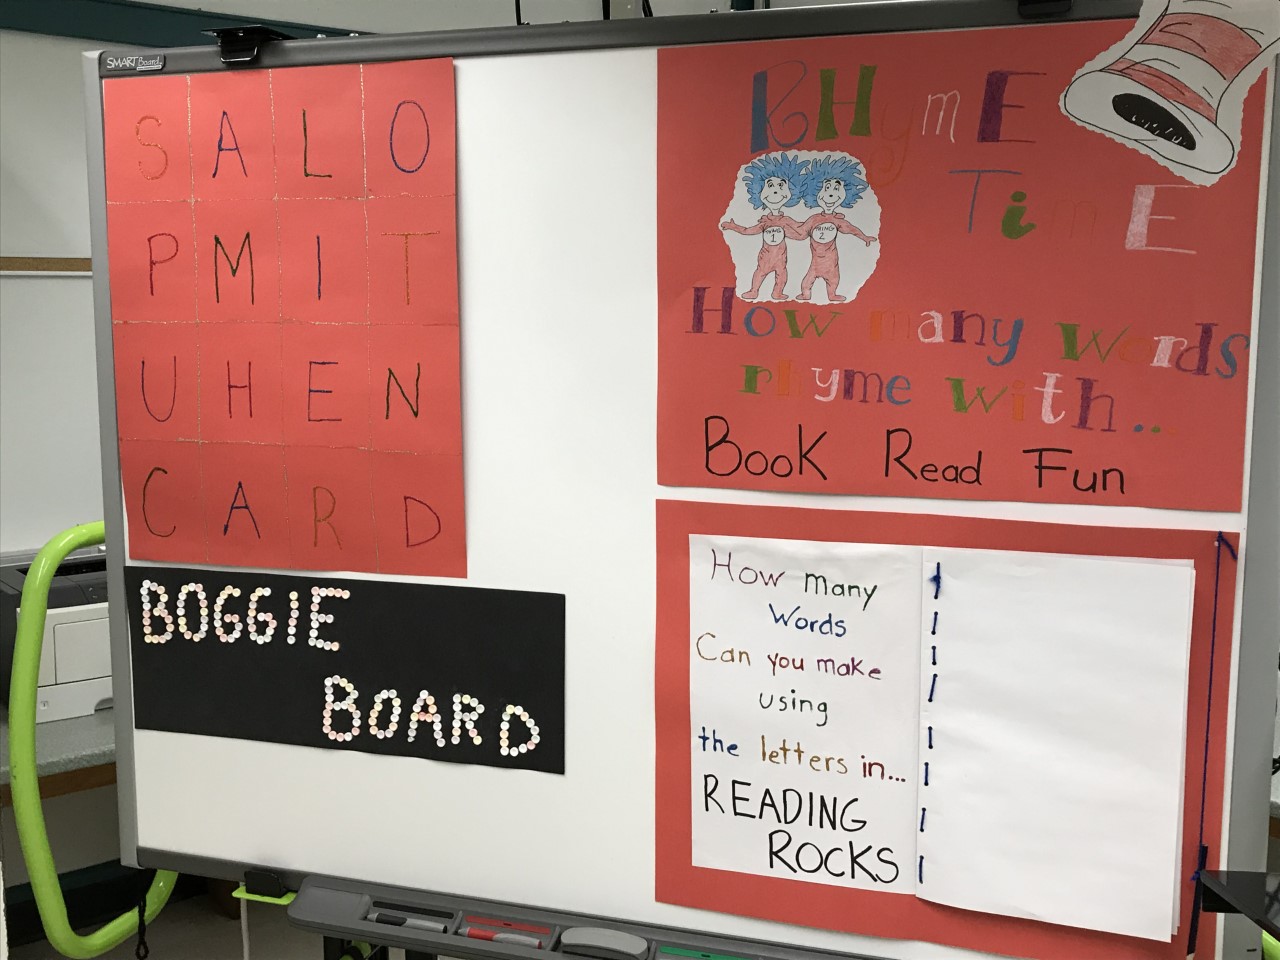 SMART Board
S A L O
P M I T
U H E N
C A R D
BOGGIE
BOARD
RHymE
TimE
THING 1
THING 2
How many words
rhyme with...
Book Read Fun
How many
Words
Can you make
using
the letters in...
READING
ROCKS